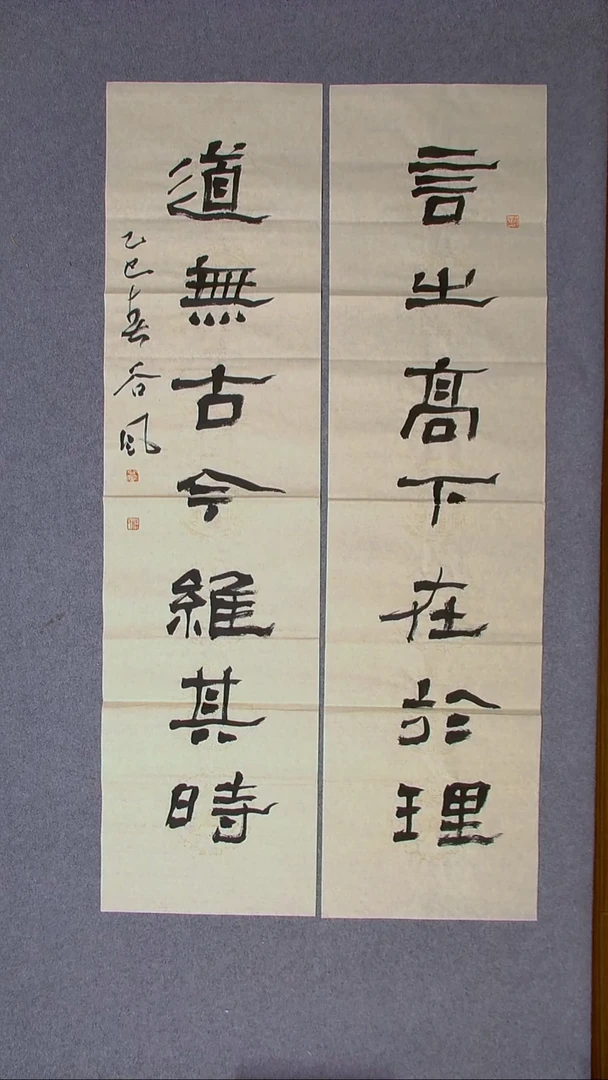 言之高下在於理
道無古今維其時
乙巳春谷風